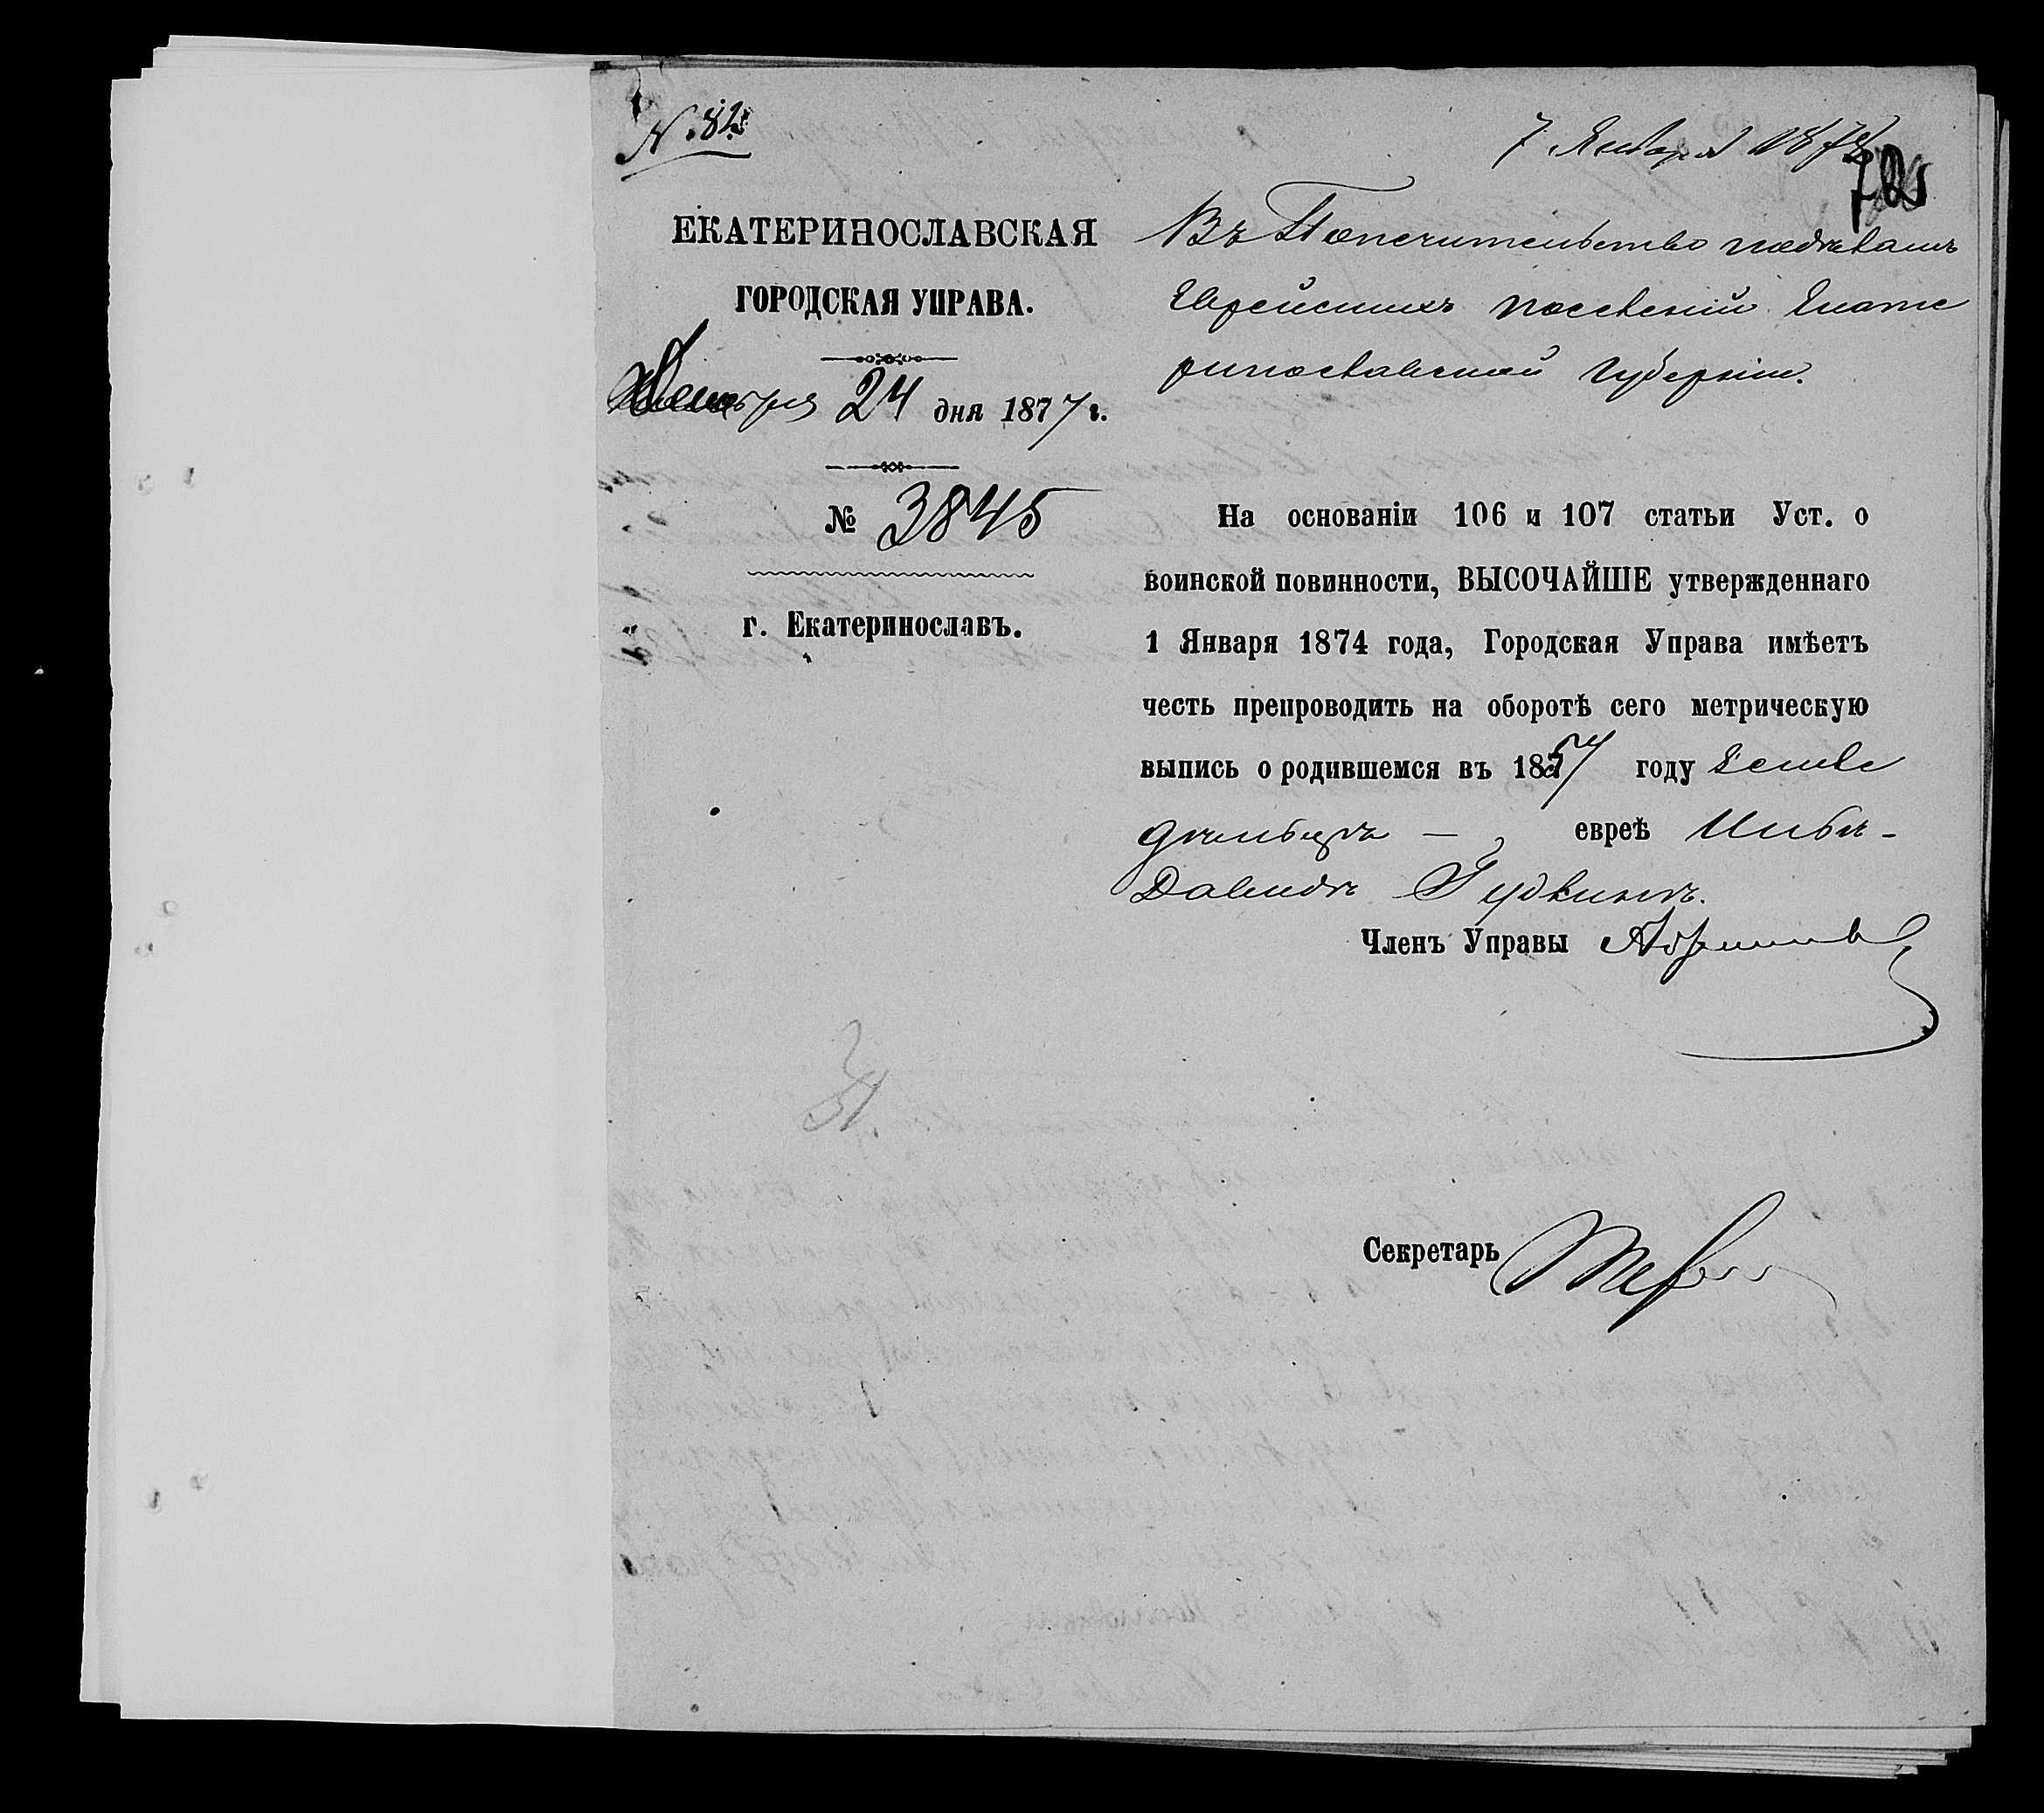 № 82
7 Января 1878
ЕКАТЕРИНОСЛАВСКАЯ
ГОРОДСКАЯ УПРАВА.
Декабря 24 дня 1877 г.
№ 3845
г. Екатеринославъ.
Въ Попечительство надъ
Еврейскихъ поселеній Екате
ринославской Губерніи.
На основаніи 106 и 107 статьи Уст. о
воинской повинности, ВЫСОЧАЙШЕ утвержденнаго
1 Января 1874 года, Городская Управа имѣетъ
честь препроводить на оборотѣ сего метрическую
выпись о родившемся въ 1857 году земле
дѣльцѣ — еврѣѣ
Давидъ Гудкинъ.
Членъ Управы
Секретарь